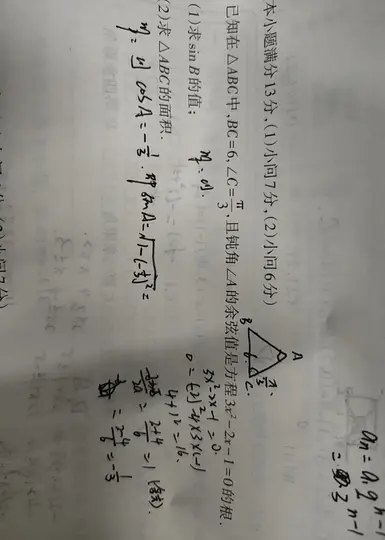 本小题满分13分,(1)小问7分,(2)小问6分)
已知在△ABC中,BC=6,∠C=π/3,且钝角∠A的余弦值是方程3x²-2x-1=0的根.
(1)求sin B的值;
(2)求△ABC的面积.
cosA=-1/3.
sinA=√1-(-1/3)²=
A
B
6
π/3
C.
3x²-2x-1=0.
(-2)²-4×3×(-1)
4+12=16.
=2+4/6=1(舍去).
=2-4/6=-1/3
an=a1qⁿ⁻¹
3ⁿ⁻¹